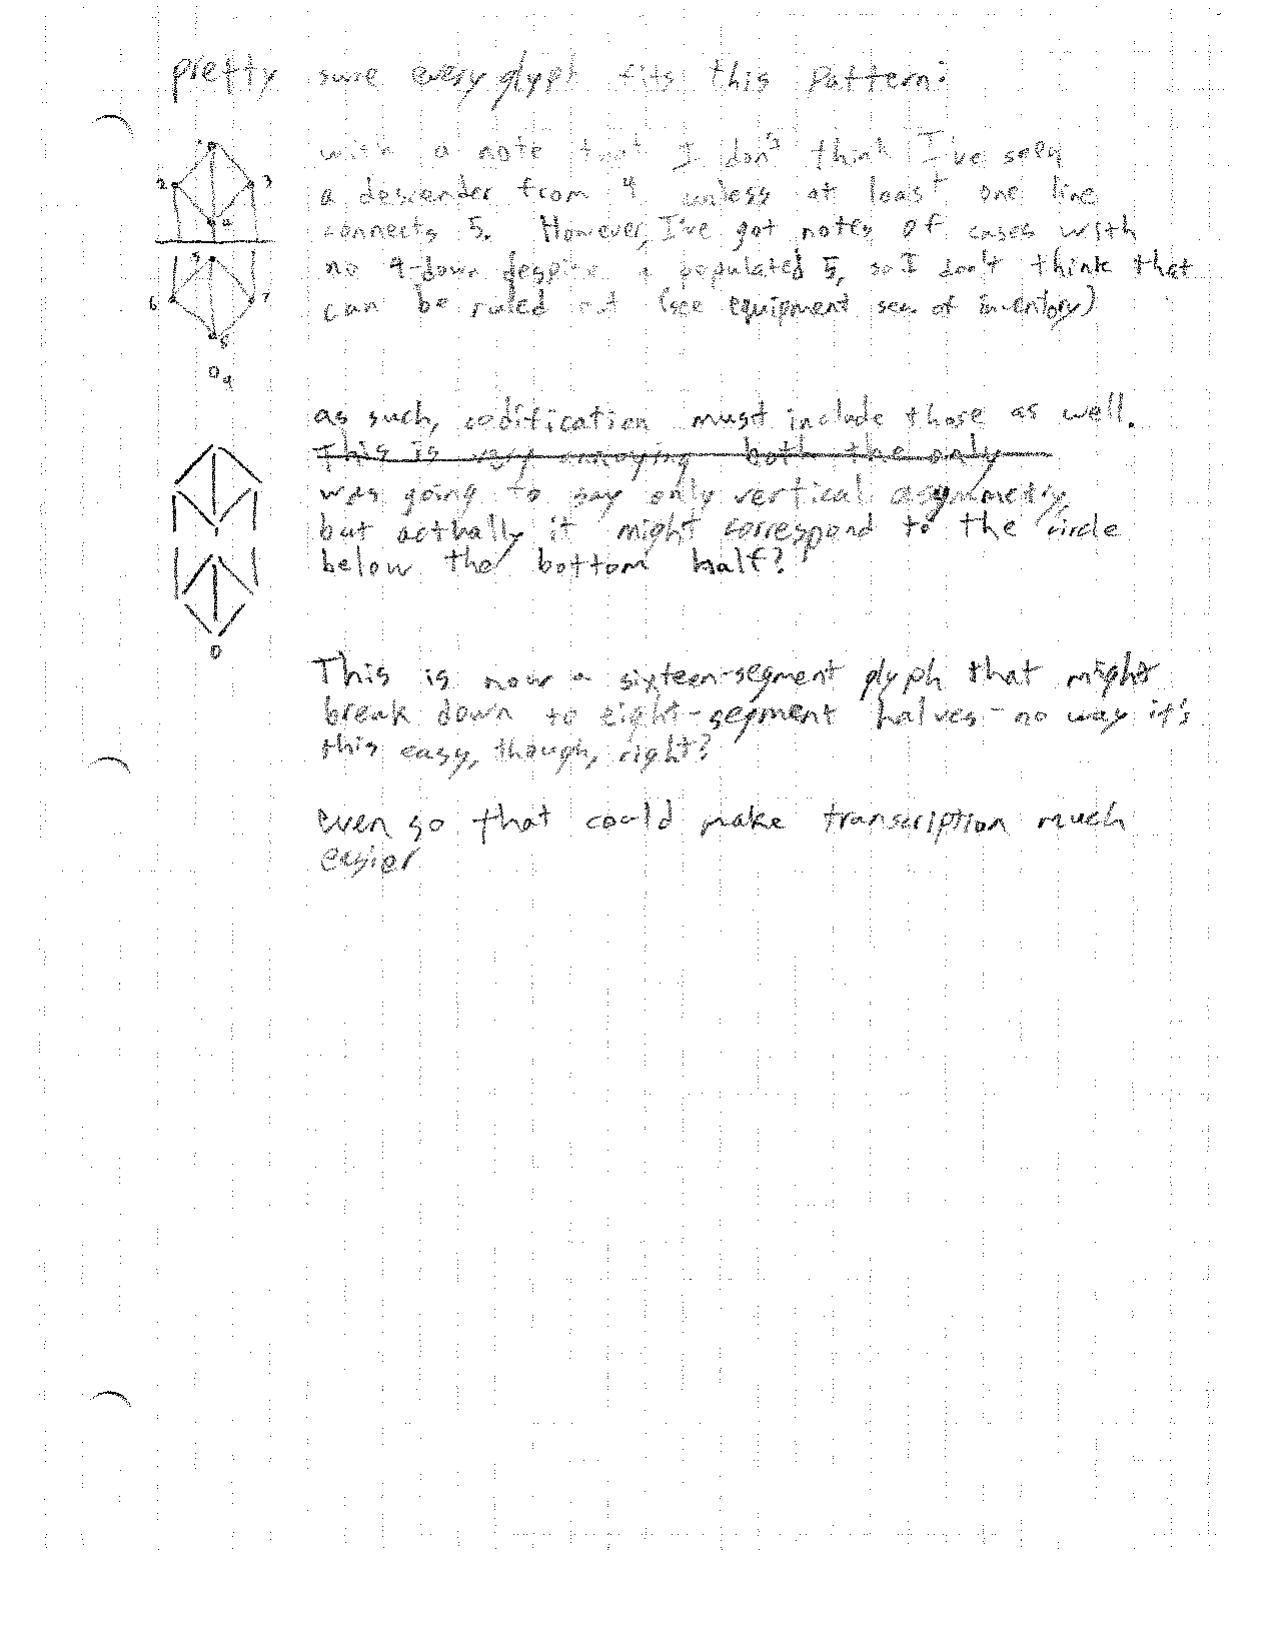 pretty sure every glyph fits this pattern:
with a note that I don't think I've seen
1
2 3
a descender from 4 unless at least one line
4
connects 5. However, I've got notes of cases with
5
no 4-down despite a populated 5, so I don't think that
6 7
can be ruled out (see equipment sec. of inventory)
8
9
as such, codification must include those as well.
This is very annoying both the only
was going to say only vertical asymmetry
but acthally it might correspond to the circle
below the bottom half?
This is now a sixteen-segment glyph that might
break down to eight-segment halves - no way it's
this easy, though, right?
even so that could make transcription much
easier